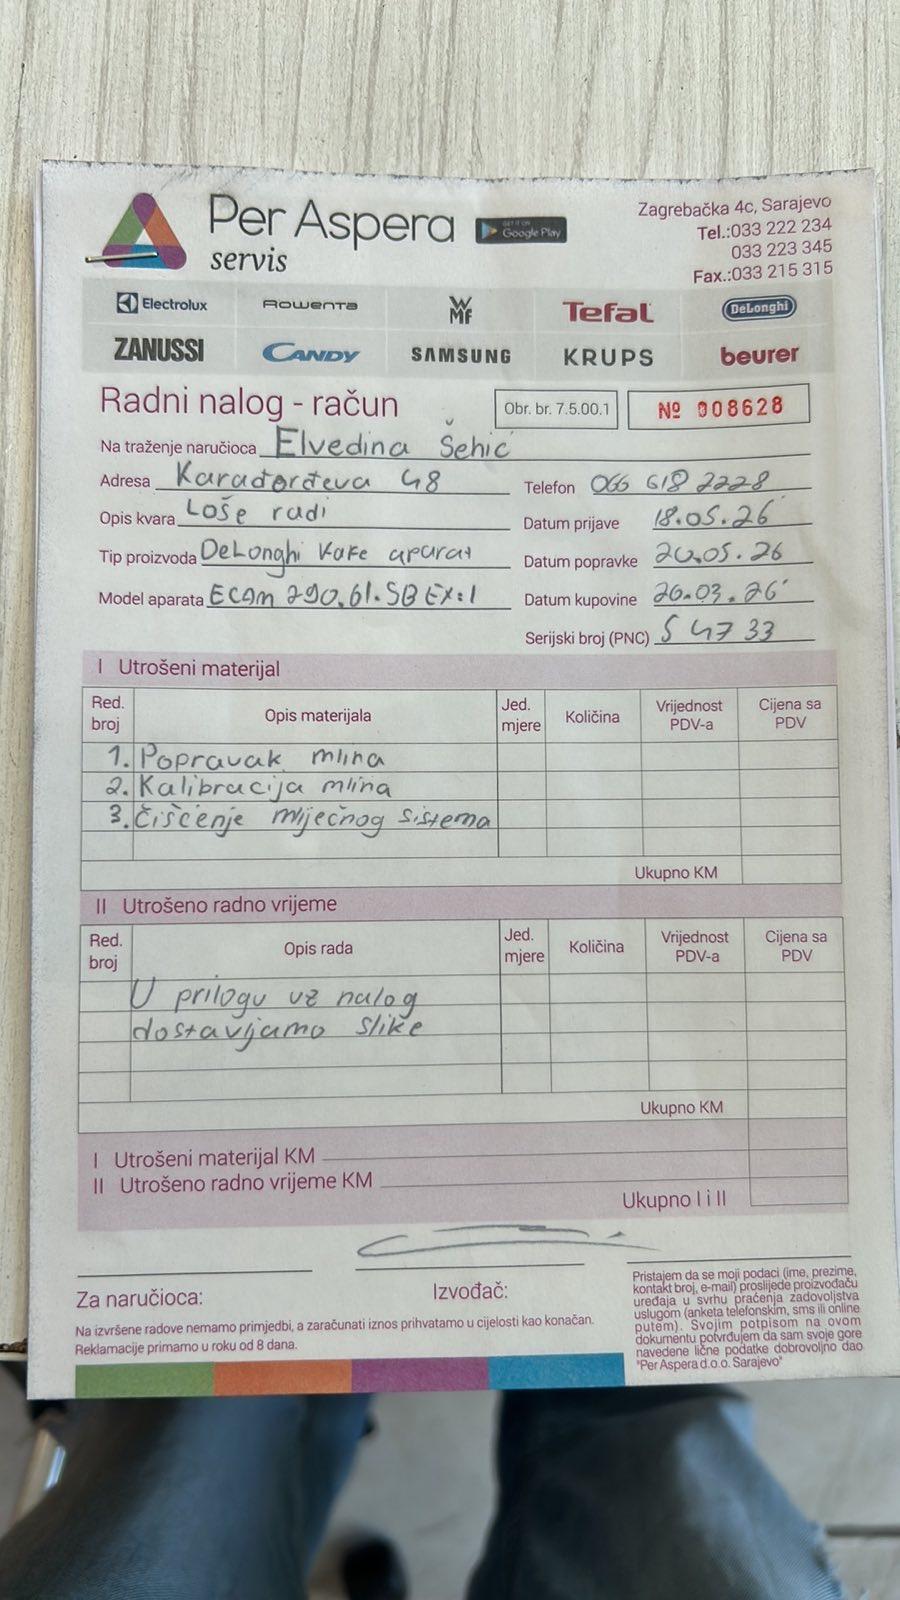 Per Aspera
servis
GET IT ON
Google Play
Zagrebačka 4c, Sarajevo
Tel.:033 222 234
033 223 345
Fax.:033 215 315
Electrolux ROWENTA WMF Tefal DeLonghi
ZANUSSI CANDY SAMSUNG KRUPS beurer
Radni nalog - račun
Obr. br. 7.5.00.1
Nº 008628
Na traženje naručioca Elvedina Šehić
Adresa Karađorđeva 48
Telefon 066 618 2228
Opis kvara Loše radi
Datum prijave 18.05.26
Tip proizvoda DeLonghi kafe aparat
Datum popravke 20.05.26
Model aparata ECAM 290.61.SB EX:1
Datum kupovine 26.03.26
Serijski broj (PNC) S 4733
I Utrošeni materijal
Red. broj Opis materijala Jed. mjere Količina Vrijednost PDV-a Cijena sa PDV
1. Popravak mlina
2. Kalibracija mlina
3. Čišćenje mliječnog sistema
Ukupno KM
II Utrošeno radno vrijeme
Red. broj Opis rada Jed. mjere Količina Vrijednost PDV-a Cijena sa PDV
U prilogu uz nalog
dostavljamo slike
Ukupno KM
I Utrošeni materijal KM
II Utrošeno radno vrijeme KM
Ukupno I i II
Za naručioca:
Izvođač:
Na izvršene radove nemamo primjedbi, a zaračunati iznos prihvatamo u cijelosti kao konačan.
Reklamacije primamo u roku od 8 dana.
Pristajem da se moji podaci (ime, prezime,
kontakt broj, e-mail) proslijede proizvođaču
uređaja u svrhu praćenja zadovoljstva
uslugom (anketa telefonskim, sms ili online
putem). Svojim potpisom na ovom
dokumentu potvrđujem da sam svoje gore
navedene lične podatke dobrovoljno dao
"Per Aspera d.o.o. Sarajevo"